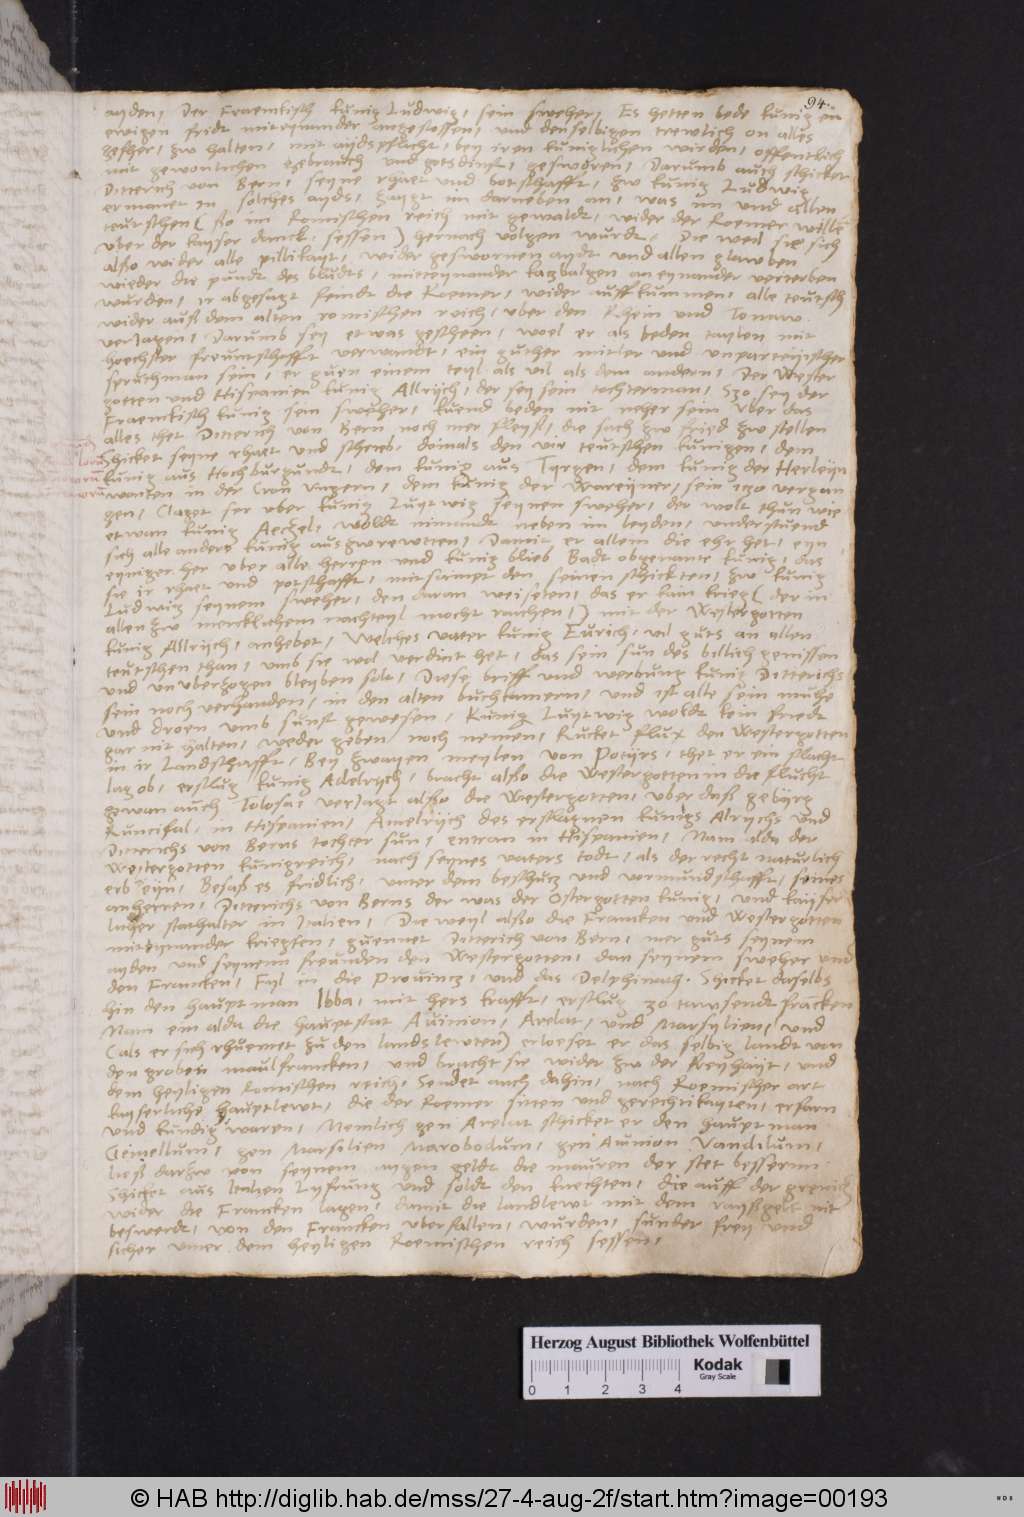 94.
ayden, Der Fraenckisch kunig Ludwig, sein sweher, Es hetten bede kunig en
ewigen fridt mitteynander angestossen, und denselbigen trewlich on alles
gefher, zw halten, mit aydspflicht, bey iren kuniglichen wirden, offentlich
mit gewonlichen gebrauch und gotsdinst, gesworen, Darumb auch schicket
Ditterich von Bern, seyne rhaet und botschafft, zw kunig Ludwig
ermanet in solches ayds, Zaygt im darneben an, was im und allen
teutschen (so im Romischen reich mit gewaldt, wider der Roemer wille
uber der kayser danck, sessen) hernach volgen wurdt, Die weil sie sich
also wider alle pillikayt, wider geswornen aydt und allen glawben
wieder die pundt des bludts, miteynander katzbalgen an eynander verterben
wurden, ir abgesagt feindt die Roemer, wider auffkummen, alle teutsch
wider auß dem alten romischen reich, uber den Rhein und Tonaw
verJagen, Darumb sey etwas gescheen, woel er als beden taylen mit
hoechster freuntschafft verwandt, ein guther mitler und unparteyischer
spruchman sein, er guen einem teyl als vil als dem andern, Der Wester
gotten und Hispanien kunig Allrych, der sey sein tochterman, Szo sey der
Fraenckisch kunig sein sweher, kuend beden nit neher sein Uber das
alles thet Ditterich von Bern noch mer fleyß, die sach zw fried zw stellen
Schicket seyne rhaet und schrieb, doimals den vir teutschen kunigen, dem
kunig aus Hochburgundt, dem kunig aus Tyrgen, dem kunig der Herleyn
wonten in der Cron Ungern, dem kunig der Wareyner, sein itzo vergan
gen, Claget ser uber kunig Luytwig seynen sweher, der wolt thun wie
etwan kunig Aeczel, woldt nimandt neben im leyden, understuend
sich alle andere kunig auszwrewtten, Damit er allein die ehr het, eyn
eyniger her uber alle herren und kunig blieb Badt obgenante kunig, das
sie ir rhaet und potschafft, mitsampt den seinen schickten, zw kunig
Ludwig seynem sweher, den daran weiseten, das er kain krieg (der in
allen zw mercklichem nachteyl mocht raichen,) mit der Westergotten
kunig Allrych, anhebet, Welches vater kunig Eurich, vil guts an allen
teutschen than, umb sie wol verdint het, das sein sun des billich genissen
und unuberzogen bleyben solt, Diese briff und werbung kunig Ditterichs
sein noch verhanden, in den alten buchkamern, und ist alle sein muhe
und droen umb sunst gewesen, Kunig Luytwig woldt kein friedt
gar nit halten, weder geben noch nemen, Rucket flux den Westergotten
in ir Landschafft, Bey zwayen meylen von Potyrs, thet er ein slacht
lag ob, erslug kunig Adelrych, bracht also die Westergotten in die flucht
gewan auch Tolosa, verJagt also die Westergotten, uber daß gebyrg
Runcifal, in Hispanien, Amelrych des erslagnen kunigs Alrychs und
Ditterichs von Berns tochter sun, entran in Hispanien, Nam alda der
Westergotten kunigreich, nach seynes vaters todt, als der recht naturlich
erb eyn, Besaß es fridlich, unter dem beschutz und vormundschafft, seines
anherren, Ditterichs von Berns der was der Ostergotten kunig, und kayser
licher stathalter in Italien, Die weyl also die Francken und Westergotten
miteynander kriegten, guennet Ditterich von Bern, mer guts seynem
ayden und seynenn freunden den Westergotten, dan seynem sweher und
den Francken, Fyl in die Provintz, und das Delphinath, Schicket daselbs
hin den hauptman Ibba, mit hers krafft, erslug 30 tawsendt francken
Nam ein alda die hauptstat Avinion, Arelat, und Marsylien, und
(als er sich rhuemet zu den landslewten) erloeset er das selbig landt von
den groben maulfrancken, und bracht sie wider zw der freyhayt, und
dem heyligen Romischen reich, Sendet auch dahin, nach Roemischer art
kayserliche hauptlewt, die der Roemer sitten und gerechtikayten, erfarn
und kundig waren, Nemlich gen Arelat schicket er den hauptman
Gemellum, gen Marsilien Marobodum, gen Avinion Vandilum,
ließ darzw von seynem aygen geldt die mauren der stet bessernn
Schicket aus Italien Lyfrung und soldt den knechten, die auff der grenitz
wider die Francken lagen, damit die landlewt mit dem rayßgelt nit
beswerdt, von den Francken uberfallen, wurden, sunder frey und
sicher unter dem heyligen Roemischen reich sessen,
Herzog August Bibliothek Wolfenbüttel
0 1 2 3 4
Kodak
Gray Scale
© HAB http://diglib.hab.de/mss/27-4-aug-2f/start.htm?image=00193